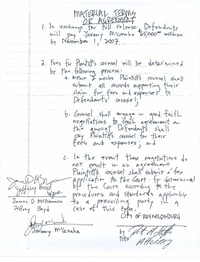 MATERIAL TERMS
OF AGREEMENT
1. In exchange for full release, Defendants
will pay Jeremy McConaha $5,000
by November 1, 2007.
2. Fees for Plaintiff's counsel will be determined
by the following process:
a. within 2 weeks Plaintiff's counsel shall
submit all awards supporting their
claim for fees and expenses to
Defendants' counsel;
b. Counsel shall engage in good faith
negotiations to reach agreement on
the amount Defendants shall
pay Plaintiff's counsel for their
fees and expenses; and
c. In the event these negotiations do
not result in an agreement
Plaintiff's counsel shall submit
application to the Court to be determined
by the Court according to the
procedures and standards applicable
to a prevailing party in a
case of this type.
James D. McNamara
Jeffrey Boyd
Jeremy McConaha
CITY OF REYNOLDSBURG
by
title
Attorney